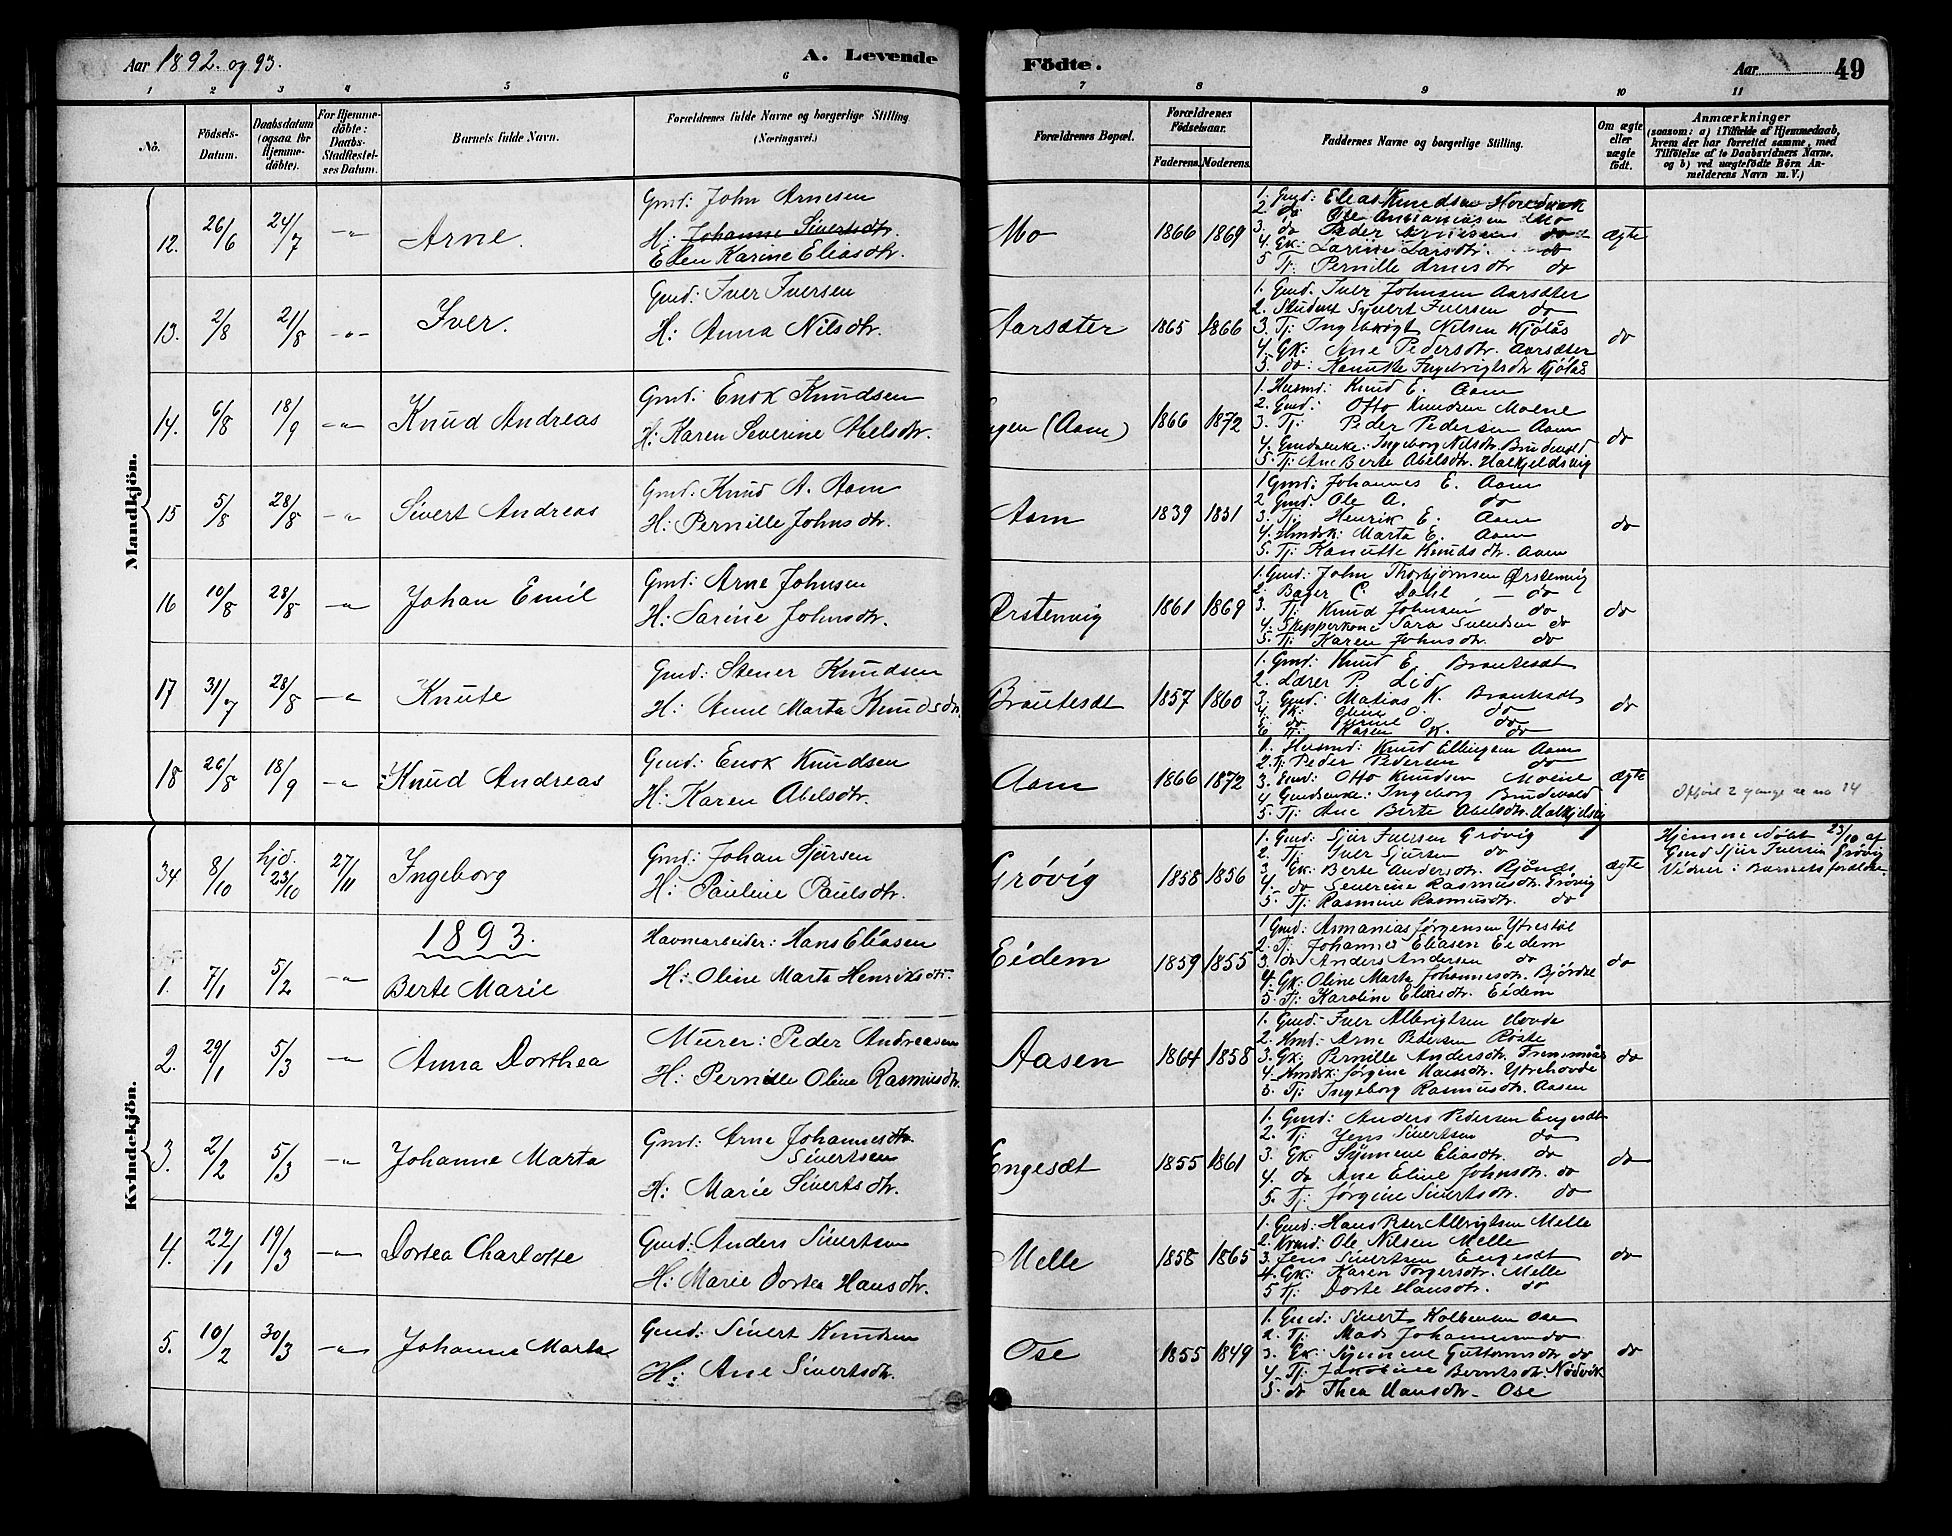 Aar 1892. og 93.
A. Levende Födte.
Aar 49
1 2 3 4 5 6 7 8 9 10 11
No.
Födsels-
Datum.
Daabsdatum
(ogsaa for
Hjemme-
döbte).
For Hjemme-
döbte:
Daabs-
Stadfæstel-
ses Datum.
Barnets fulde Navn.
Forældrenes fulde Navne og borgerlige Stilling
(Næringsvei.)
Forældrenes Bopæl.
Forældrenes
Födselsaar.
Faderens. Moderens.
Faddernes Navne og borgerlige Stilling.
Om ægte
eller
uægte
födt.
Anmærkninger
(saasom: a) i Tilfælde af Hjemmedaab,
hvem der har forrettet samme, med
Tilföielse af to Daabsvidners Navne.
og b) ved uægtefödte Börn An-
melderens Navn m. V.)
Mandkjön.
12. 26/6 24/7 -"- Arne.
Gmd: John Arnesen
H: Johanne Sivertsdtr.
Elen Karine Eliasdtr.
Mo 1866 1869
1. Gmd: Elias Knudsen
2. do Ole Ananiassen Mo
3. do Peder Arnesen do
4. Gk: Larine Larsdtr. do
5 Tj: Pernille Arnesdtr do
ægte
13. 2/8 21/8 -"- Iver.
Gmd: Iver Iversen
H: Anna Nilsdtr.
Aarsæter 1865 1866
1. Gmd. Iver Johnsen Aarsæter
2. Student Syvert Iversen do
3. Tj: Ingebrigt Nilsen Kjølås
4. Gk: Ane Pedersdtr. Aarsæter
5. do: Kanutte Ingebrigtsdtr Kjølås
do
14. 6/8 18/9 -"- Knud Andreas
Gmd: Enok Knudsen
H: Karen Severine Abelsdtr.
(Aam) 1866 1872
1. Husmd: Knud E. Aam
2. Gmd: Otto Knudsen Moene
3. Tj: Peder Pedersen Aam
4. Gmdsenke: Ingeborg Nilsdtr. Brudevold
5. Tj: Ane Berte Abelsdtr. Halkjeldsvig
do
15 5/8 28/8 -"- Sivert Andreas
Gmd: Knud A. Aam
H: Pernille Johnsdtr.
Aam 1839 1851
1 Gmd: Johannes E. Aam
2 Gmd. Ole A. do
3. Tj: Henrik E. Aam
4. Hmdsk: Marta E. Aam
5. Tj: Kanutte Knudsdtr. Aam
do
16 10/8 28/8 -"- Johan Emil
Gmd: Arne Johnsen
H: Sarine Johnsdtr.
Ørstenvig 1861 1869
1. Gmd: John Thorbjørnsen Ørstenvig
2. Bager C. Dahl - do
3. Tj: Knud Johnsen do
4. Skipperkone Sara Svendsen do
5. Tj: Karen Johnsdtr. do
do
17 31/7 28/8 -"- Knute
Gmd: Stener Knudsen
H: Anne Marta Knudsdtr.
Brautesæt 1857 1860
1. Gmd: Knud E. Brautesæt
2. Lærer P. Lid
3. Gmd: Matias K. Brautesæt
4. Gk: Oline O. do
do O. do
Tj: Karen K. do
do
18 26/8 18/9 -"- Knud Andreas
Gmd: Enok Knudsen
H: Karen Abelsdtr.
Aam 1866 1872
1. Husmd: Knud Ellingsen Aam
2. Tj: Peder Pedersen do
3. Gmd: Otto Knudsen Moene
4. Gmdsenke: Ingeborg Brudevold
5. Tj: Ane Berte Abelsdtr. Halkjelsvig
ægte
2 gange se no 14
Kvindekjön.
34 8/10 hjd. 23/10 27/11 Ingeborg
Gmd: Johan Sjursen
H: Pauline Paulsdtr.
Grøvig 1858 1856
1. Gmd: Sjur Iversen Grøvig
2. Tj: Iver Sjursen do
3. Gk: Berte Andersdtr.
4. do Severine Rasmusdtr. Grøvig
5. Tj: Rasmine Rasmusdtr. do
ægte
Hjemmedøbt 23/10 af
Gmd Sjur Iversen Grøvig
Vidner: Barnets forældre.
1893.
1. 7/1 5/2 -"- Berte Marie
Havnearbeider: Hans Eliasen
H: Oline Marta Henriksdtr.
Eidem 1859 1855
1 Gmd: Annanias Jørgensen Ytrestøl
2. Tj: Johannes Eliasen Eidem
3. do Anders Andersen do
4. Gk: Oline Marta Johannesdtr. Bjørdal
5. Tj: Karoline Eliasdtr. Eidem
do
2. 29/1 5/3 -"- Anna Dorthea
Murer: Peder Andreasen
H: Pernille Oline Rasmusdtr.
Aasen 1864 1858
1. Gmd: Iver Albrigtsen Hovde
2. Hmd: Arne Petersen Røste
3. Gk: Pernille Andersdtr.
4. Hmdsk: Jørgine Hansdtr. Ytrehovde
5. Tj: Ingeborg Rasmusdtr. Aasen
do
3. 2/2 5/3 -"- Johanne Marta
Gmd: Arne Johannesdtr
Sivertsen
H: Marie Sivertsdtr.
Engesæt 1855 1861
1. Gmd: Anders Pedersen Engesæt
2. Tj: Jens Sivertsen do
3. Gk Synneve Eliasdtr. do
4. do Ane Eline Johnsdtr. do
5. Tj: Jørgine Sivertsdtr. do
do
4. 22/1 19/3 -"- Dortea Charlotte
Gmd: Anders Sivertsen
H: Marie Dortea Hansdtr.
Melle 1858 1865
1. Gmd: Hans Peter Albrigtsen Melle
2. Kvmd: Ole Nilsen Melle
3. Jens Sivertsen Engesæt
4. Gk: Karen Torgersdtr. Melle
5 Tj: Dorte Hansdtr. do
do
5. 10/2 30/3 -"- Johanne Marta
Gmd: Sivert Knudsen
H: Ane Sivertsdtr.
Ose 1855 1849
1. Gmd: Sivert Kolbensen Ose
2. Tj: Mads Johannessen do
3. Gk: Synneve Guttormsdtr do
4. Tj: Berntsdtr. Nødvik
5. do Thea Hansdtr. Ose
do